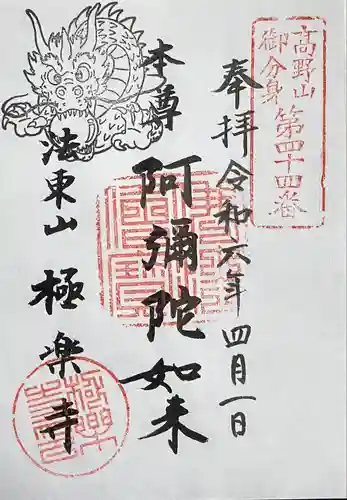 高野山
御分身
第四十四番
奉拝 令和六年 四月一日
本尊 阿彌陀如来
法東山 極楽寺